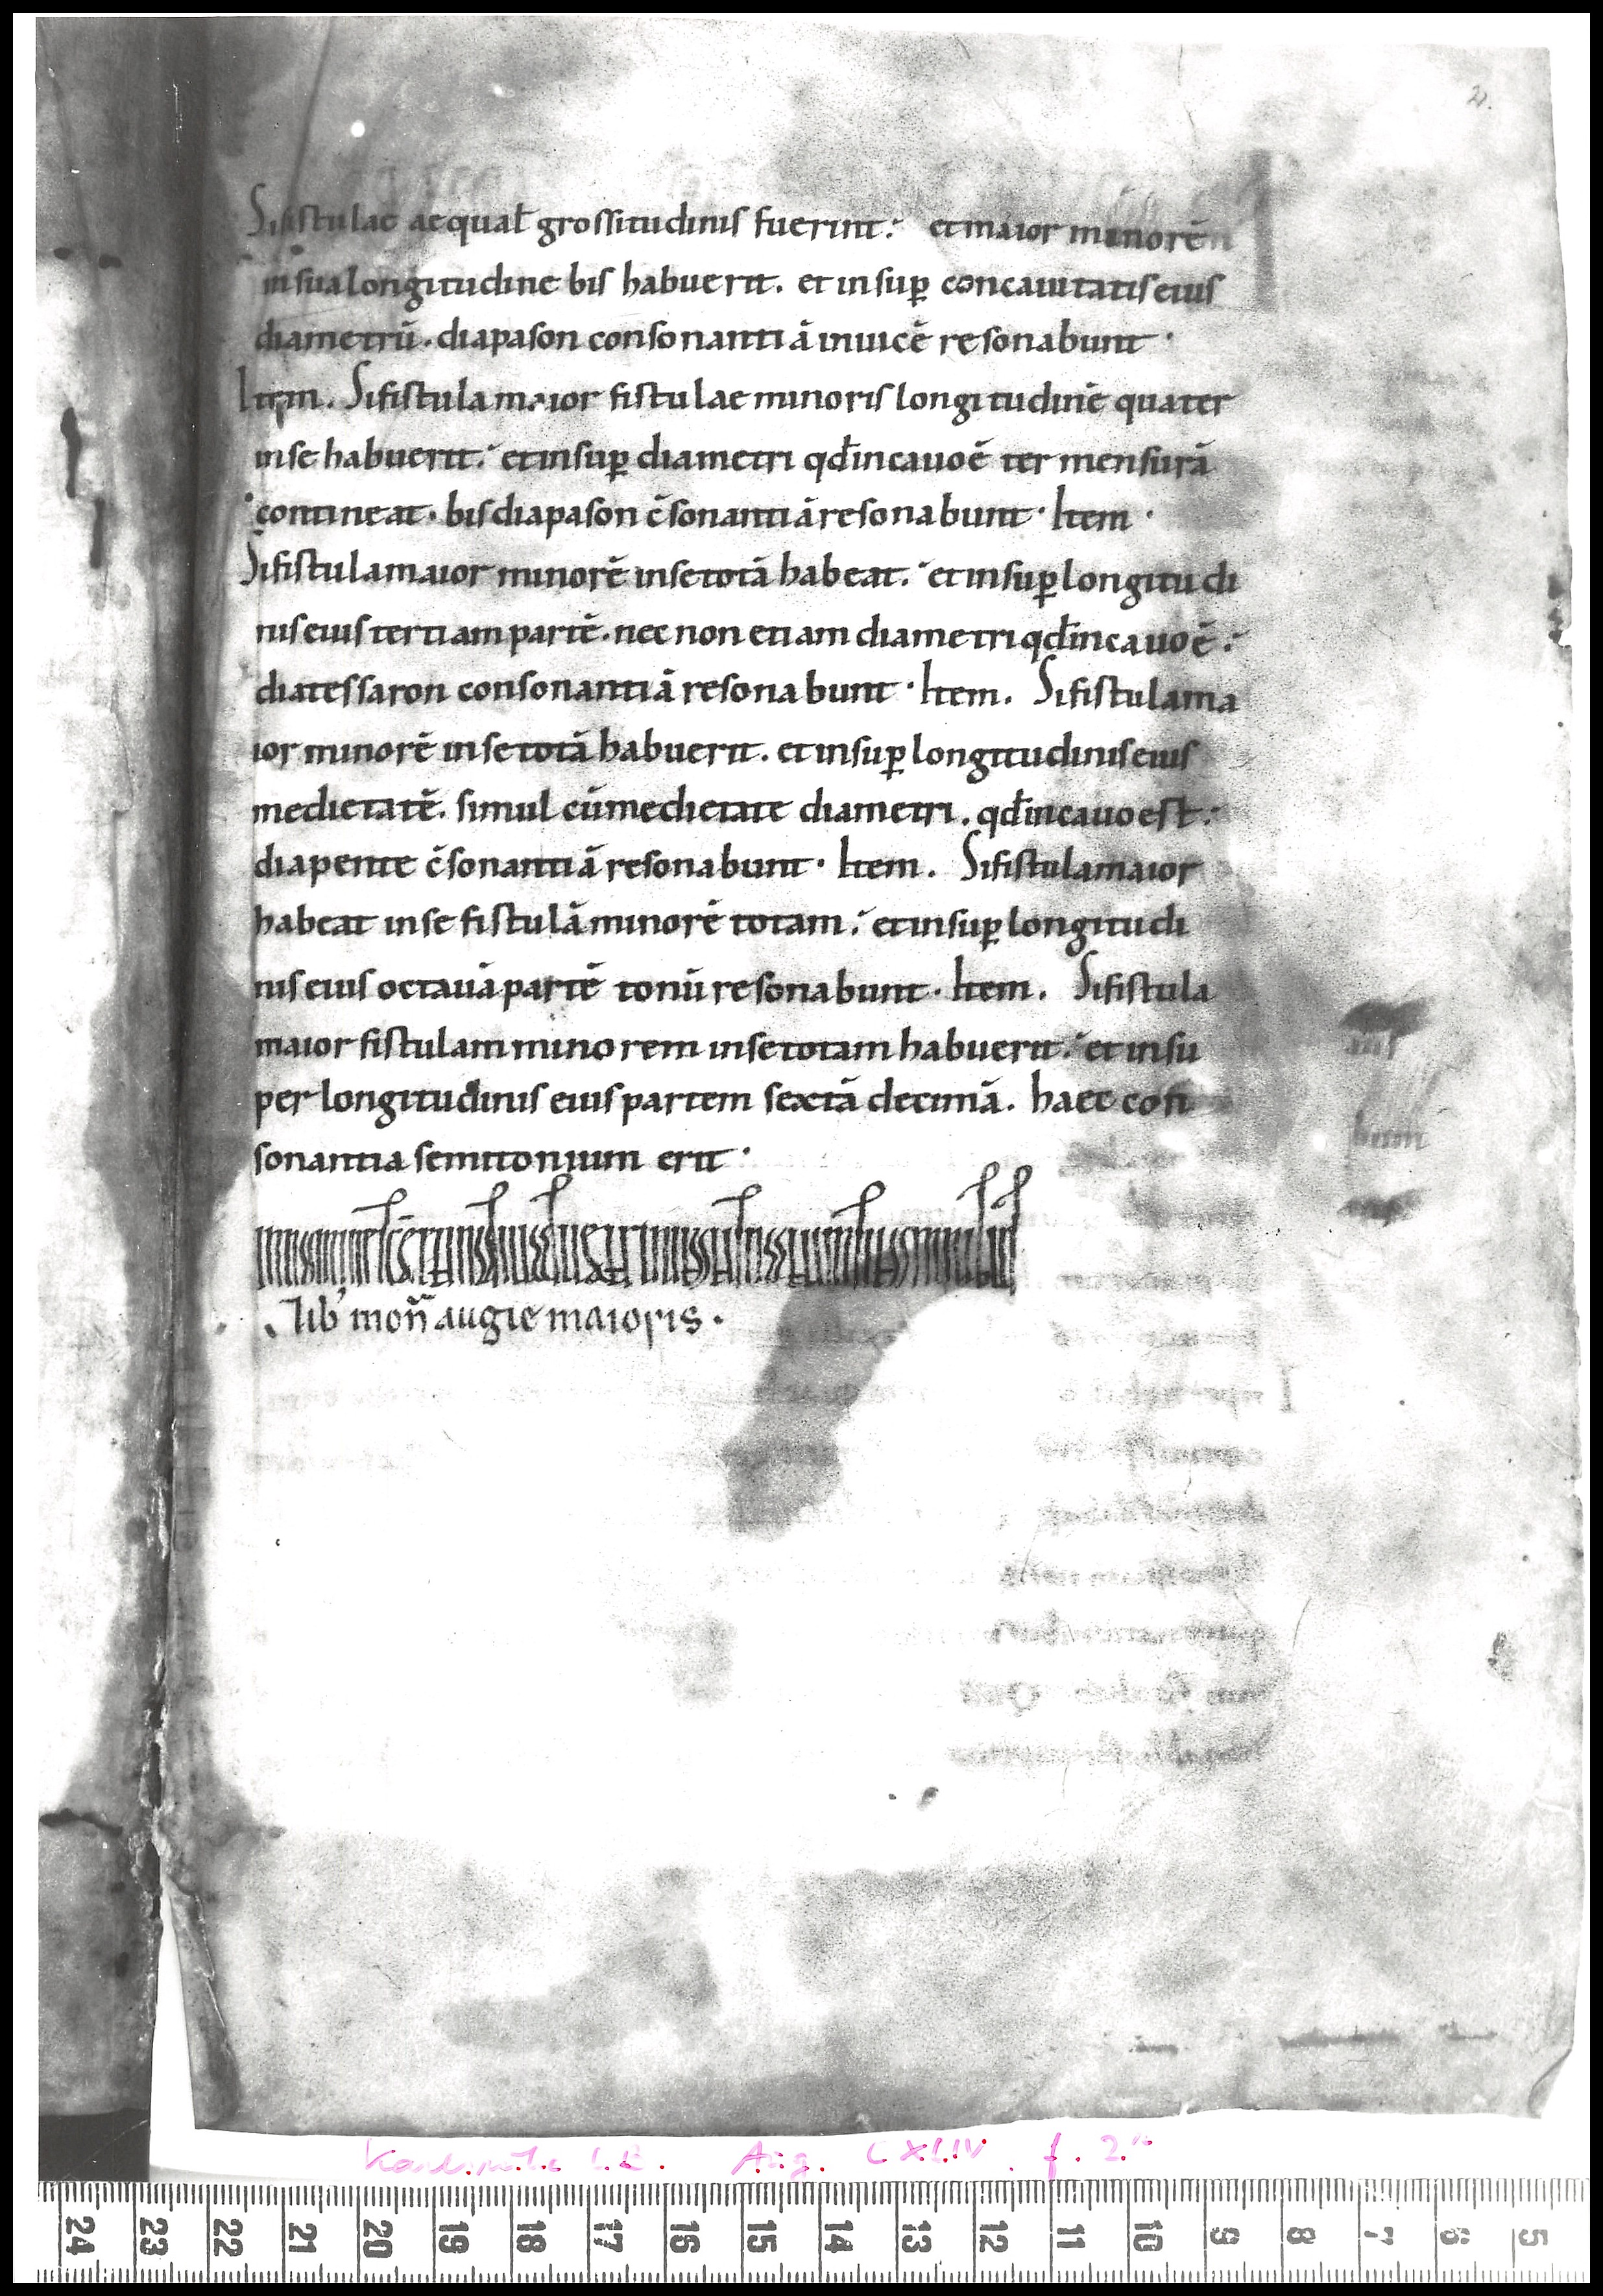 2.
Si fistulae aequal̄ grossitudinis fuerint: et maior minorē
in sua longitudine bis habuerit. et insup̱ concauitatis eius
diametrū. diapason consonantiā inuicē resonabunt·
Item. Si fistula maior fistulae minoris longitudinē quater
in se habuerit: et insup̱ diametri qđ in cauo ē ter mensurā
contineat. bis diapason c̄sonantiā resonabunt· Item·
Si fistula maior minorē in se totā habeat: et insup̱ longitudi
nis eius tertiam partē. nec non etiam diametri qđ in cauo ē:
diatessaron consonantiā resonabunt· Item. Si fistula ma
ior minorē in se totā habuerit. et insup̱ longitudinis eius
medietatē. simul cū medietate diametri. qđ in cauo est:
diapente c̄sonantiā resonabunt· Item. Si fistula maior
habeat in se fistulā minorē totam: et insup̱ longitudi
nis eius octauā partē tonū resonabunt· Item. Si fistula
maior fistulam minorem in se totam habuerit: et insu
per longitudinis eius partem sextā decimā. haec con
sonantia semitonium erit·
lib' mon̄ augie maioris.
Karlsruhe L.B. Aug. CXLIV f. 2r
24 23 22 21 20 19 18 17 16 15 14 13 12 11 10 9 8 7 6 5